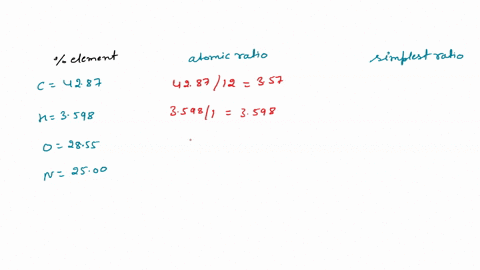 % element atomic ratio simplest ratio
C = 42.87 42.87/12 = 3.57
H = 3.598 3.598/1 = 3.598
O = 28.55
N = 25.00